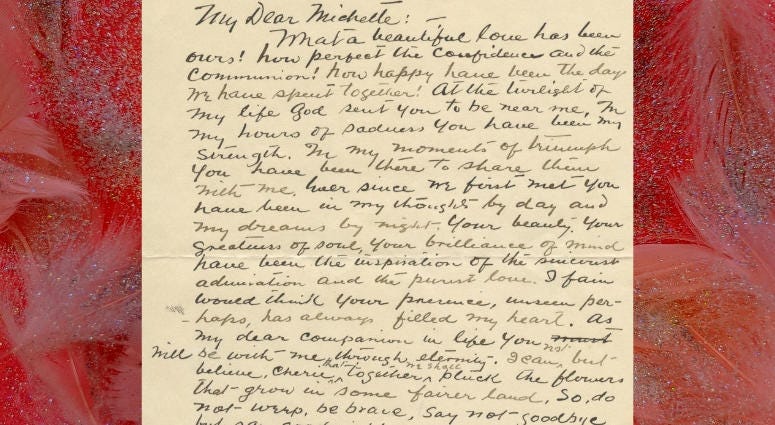 My Dear Michette:
What a beautiful love has been
ours! how perfect the confidence and the
Communion! how happy have been the days
we have spent together! At the twilight of
my life God sent you to be near me, In
my hours of sadness you have been my
strength. In my moments of triumph
you have been there to share them
with me, Ever since we first met you
have been in my thoughts by day and
my dreams by night. Your beauty, Your
greatness of soul, Your brilliance of mind
have been the inspiration of the sincerest
admiration and the purest love. I fain
would think your presence, unseen per-
-haps, has always filled my heart. As
my dear companion in life you must
will be with me through eternity. I can not but
believe, cherie, that together, we shall pluck the flowers
that grow in some fairer land, So, do
not weep, be brave, say not goodbye
but say